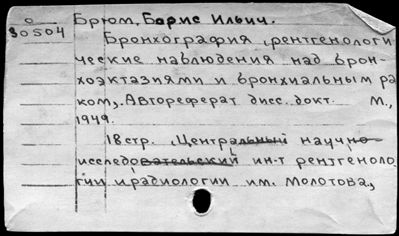 о Брюм, Борис Ильич.
30504
Бронхография, рентгенологи-
ческие наблюдения над брон-
хоэктазиями и бронхиальным ра
ком. Автореферат дисс. докт. М.,
1949.
18стр. Центральный научно
исследовательский ин-т рентгеноло
гии и радиологии им. Молотова.,